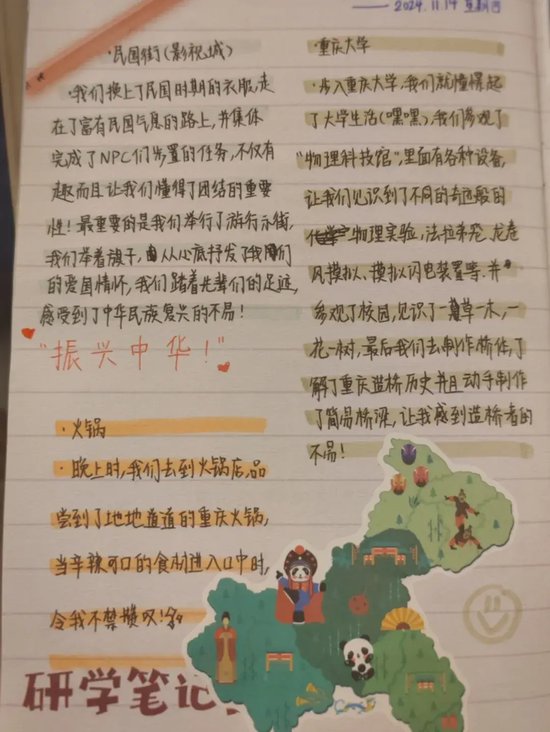 2024.11.14 星期四
·民国街(影视城)
·我们换上了民国时期的衣服,走
在了富有民国气息的路上,并集体
完成了NPC们步置的任务,不仅有
趣而且让我们懂得了团结的重要
性!最重要的是我们举行了游行示街,
我们举着旗子,由从心底抒发了我们
的爱国情怀,我们踏着先辈们的足迹,
感受到了中华民族复兴的不易!
"振兴中华!"
·火锅
·晚上时,我们去到火锅店,品
尝到了地地道道的重庆火锅,
当辛辣可口的食材进入口中时,
令我不禁攒叹!
重庆大学
·步入重庆大学,我们就憧憬起
了大学生活(嘿嘿),我们参观了
"物理科技馆",里面有各种设备,
让我们见识到了不同的奇迹般的
物理实验,法拉弟笼、龙卷
风模拟、模拟闪电装置等.并
参观了校园,见识了一草一木,一
花一树,最后我们去制作桥体,了
解了重庆造桥历史并且动手制作
了简易桥梁,让我感到造桥者的
不易!
研学笔记